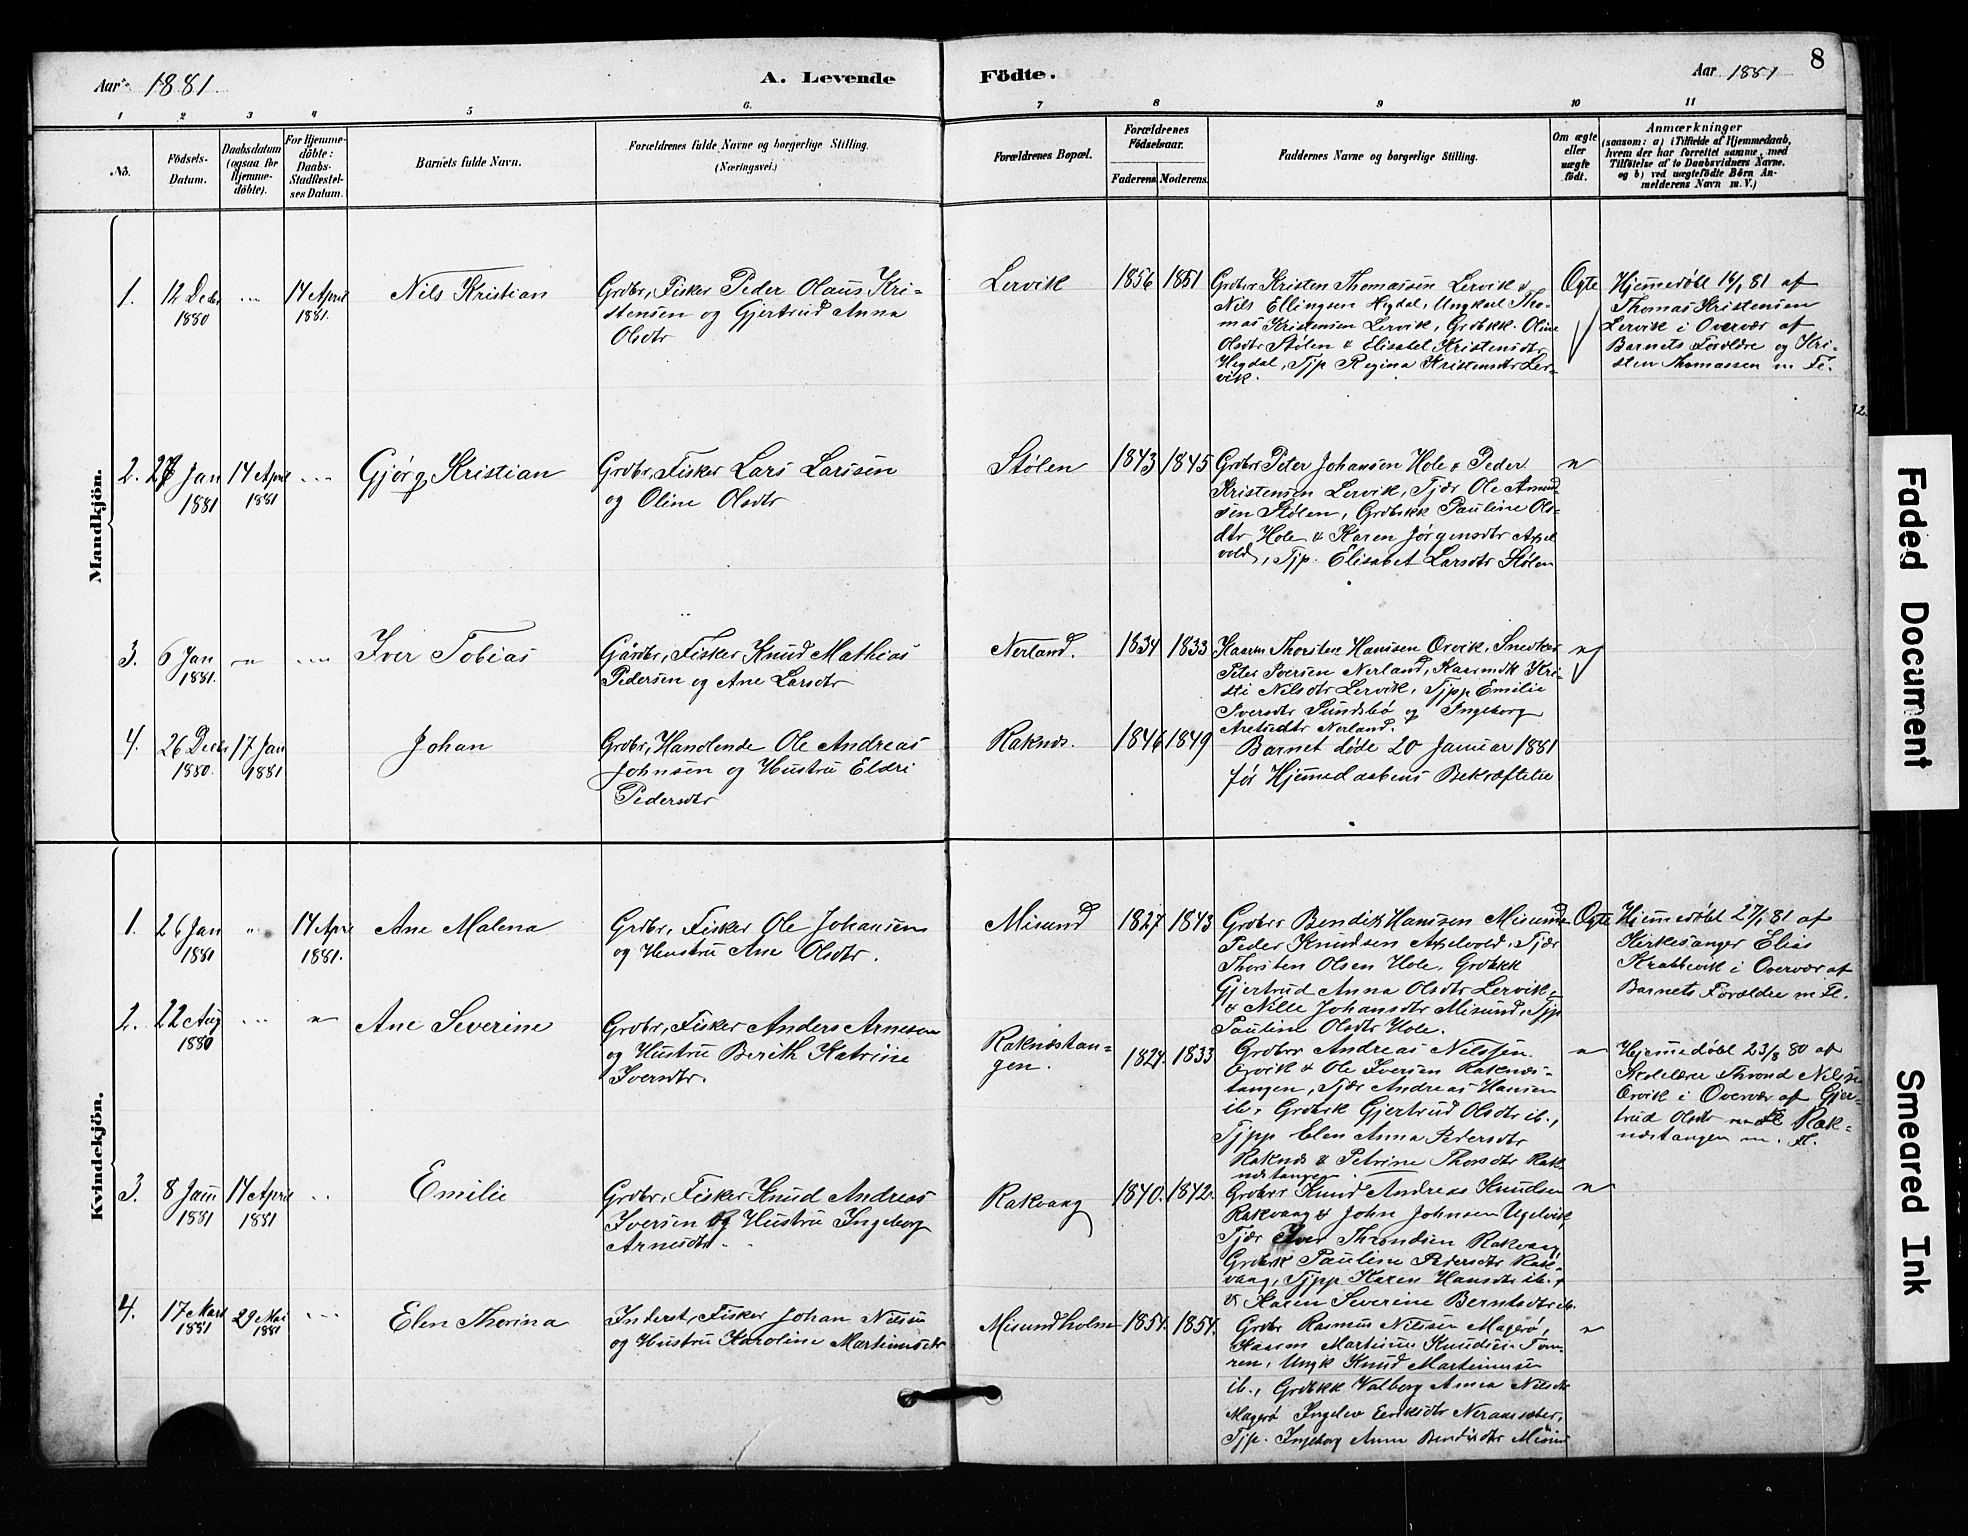 Aar 1881
A. Levende
Födte.
Aar 1881
8
1 2 3 4 5 6. 7 8 9 10 11
No.
Födsels-
Datum.
Daabsdatum
(ogsaa for
Hjemme-
döbte).
For Hjemme-
döbte:
Daabs-
Stadfæstel-
ses Datum.
Barnets fulde Navn.
Forældrenes fulde Navne og borgerlige Stilling.
(Næringsvei.)
Forældrenes Bopæl.
Forældrenes
Födselsaar.
Faderens. Moderens.
Faddernes Navne og borgerlige Stilling.
Om ægte
eller
uægte
födt.
Anmærkninger
(saasom: a) i Tilfælde af Hjemmedaab,
hvem der har forrettet samme, med
Tilföielse af to Daabsvidners Navne.
og b) ved uægtefödte Börn An-
melderens Navn m. V.)
Mandkjön.
1.
12 Decbr
1880
14 April
1881.
Nils Kristian
Grdbr, Fisker Peder Olaus Kri-
stensen og Gjertrud Anna
Olsdtr
Lervik
1856 1851
Grdbr Kristen Thomassen Lervik &
Nils Ellingsen Hegdal, Ungkarl Tho-
mas Kristensen Lervik, Grdbkk. Oline
Olsdtr Stølen & Elisabet Kristensdtr
Hegdal, Tjp Regina Kristensdtr Ler-
vik.
Ægte
Hjemmedøbt 16/1 81 af
Thomas Kristensen
Lervik i Overvær af
Barnets Forældre og Kri-
sten Thomassen m Fl.
2.
27 Jan
1881
14 April
1881
Gjørg Kristian
Grdbr, Fisker Lars Larssen
og Oline Olsdtr
Stølen
1843 1845
Grdbrr Peter Johansen Hole & Peder
Kristensen Lervik, Tjdr Ole Amund-
sen Stølen, Grdbrkk Pauline Ols-
dtr Hole & Karen Jørgensdtr Axel
vold, Tjp. Elisabet Larsdtr Stølen
"
3.
6 Jan
1881.
"
Iver Tobias
Gårdbr, Fisker Knud Mathias
Pedersen og Ane Larsdtr
Nerland.
1834 1833
Kaarm Thorsten Hanssen Orvik, Snedker
Peter Iversen Nerland, Kaarmdk Kri-
sti Nilsdtr Lervik, Tjpp Emilie
Iversdtr Sundsbø og Ingeborg
Nerland.
"
4.
26 Decbr
1880.
17 Jan
1881
Johan
Grdbr, Handlende Ole Andreas
Johnsen og Hustru Eldri
Pedersdtr
Raknæs.
1846 1849
Barnet døde 20 Januar 1881
før Hjemedaabens Bekræftelse
Kvindekjön.
1.
26 Jan
1881
"
14 April
1881.
Ane Malena
Grdbr, Fisker Ole Johansen
og Hustru Ane Olsdtr.
Misund
1827 1843
Grdbrr Bendik Hanssen Misund
Peder Knudsen Axelvold, Tjdr
Thorsten Olsen Hole, Grdbkk
Gjertrud Anna Olsdtr Lervik
& Nille Johansdtr Misund, Tjp
Pauline Olsdtr Hole.
Ægte
Hjemmedøbt 27/1 81 af
Kirkesanger Elias
Krabbevik i Overvær af
Barnets Forældre m Fl.
2.
22 Aug
1880
"
Ane Severine
Grdbr, Fisker Anders Arnesen
og Hustru Berith Katrine
Iversdtr.
Raknæstan-
gen.
1824. 1833
Grdbrr Andreas Nilssen
Orvik & Ole Iversen Raknæs-
tangen, Tjdr Andreas Hansen
ib., Grdbrk Gjertrud Olsdtr ib.,
Tjpp Elen Anna Pedersdtr
Raknæs & Petrine Thorsdtr Rak-
næstangen.
"
Hjemmedøbt 23/8 80 af
Skolelærer Thrond Nilssen
Orvik i Overvær af Gjer-
trud Olsdtr Rak-
næstangen m. Fl.
3.
8 Janu
1881
14 April
1881
Emilie
Grdbr, Fisker Knud Andreas
Iversen og Hustru Ingeborg
Arnesdtr.
Rakvaag
1840. 1842.
Grdbrr Knud Andreas Knudsen
Rakvaag & John Johnsen Ugelvik
Tjdr Iver Throndsen Rakvaag,
Grdbrk Pauline Pedersdtr Rak-
vaag, Tjpp Karen Hansdtr ib.
& Karen Severine Berntsdtr ib.
"
4.
17 Mart
1881
29 Mai
1881
Elen Thorina
Inderst, Fisker Johan Nilssen
og Hustru Karoline Martinusdtr
Misundholm
1854. 1854.
Grdbr Rasmus Nilssen Magerø,
Kaarm Martinus Knudsen Tom-
ren, Ungk Knud Martinussen
ib., Grdbkk Valborg Anna Nilsdtr
Magerø Ingelev Eeriksdtr
Tjp. Ingeborg Anna Bendiksdtr Misund
"
Faded Document
Smeared Ink